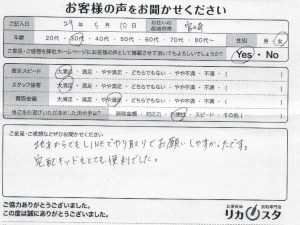 お客様の声をお聞かせください
ご記入日 29年 5月 10日 お住いの都道府県
年齢 20代・30代・40代・50代・60代・70代・80代〜 性別 男・女
ご意見・ご感想を弊社ホームページにお客様の声として掲載させて頂いてもよろしいでしょうか? Yes・No
査定スピード 大満足・満足・どちらでもない・やや不満・不満・( )
スタッフ接客 大満足・満足・やや満足・どちらでもない・やや不満・不満・( )
買取金額 大満足・満足・やや満足・どちらでもない・やや不満・不満・( )
買取金額・対応力・お手軽さ・スピード・その他( )
ご意見・ご感想などぜひお聞かせください
地方からでもLINEでやり取りでお願いしやすかったです。
宅配キッドもとても便利でした。
ご協力ありがとうございました。
この度は誠にありがとうございました。
お酒買取 買取専門店
リカスタ